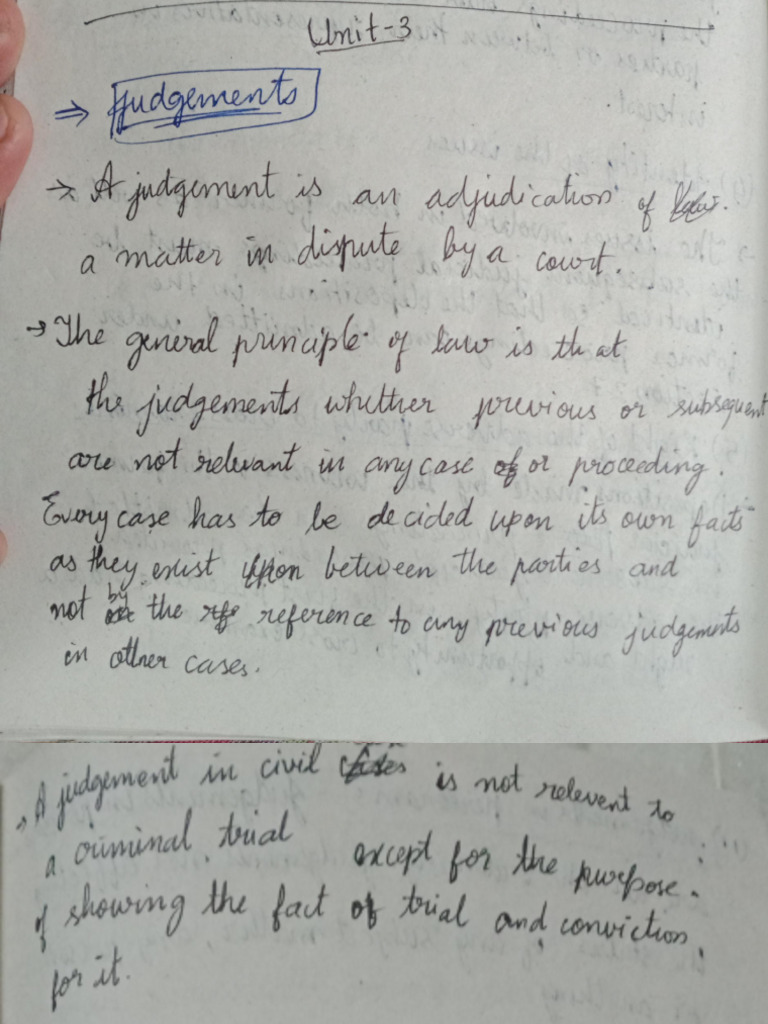 Unit-3
⇒ Judgements
→ A judgement is an adjudication of
a matter in dispute by a court.
→ The general principle of law is that
the judgements whether previous or subsequent
are not relevant in any case or proceeding.
Every case has to be decided upon its own facts
as they exist between the parties and
not by the reference to any previous judgements
in other cases.
→ A judgement in civil cases is not relevent to
a criminal trial except for the purpose.
of showing the fact of trial and conviction
for it.